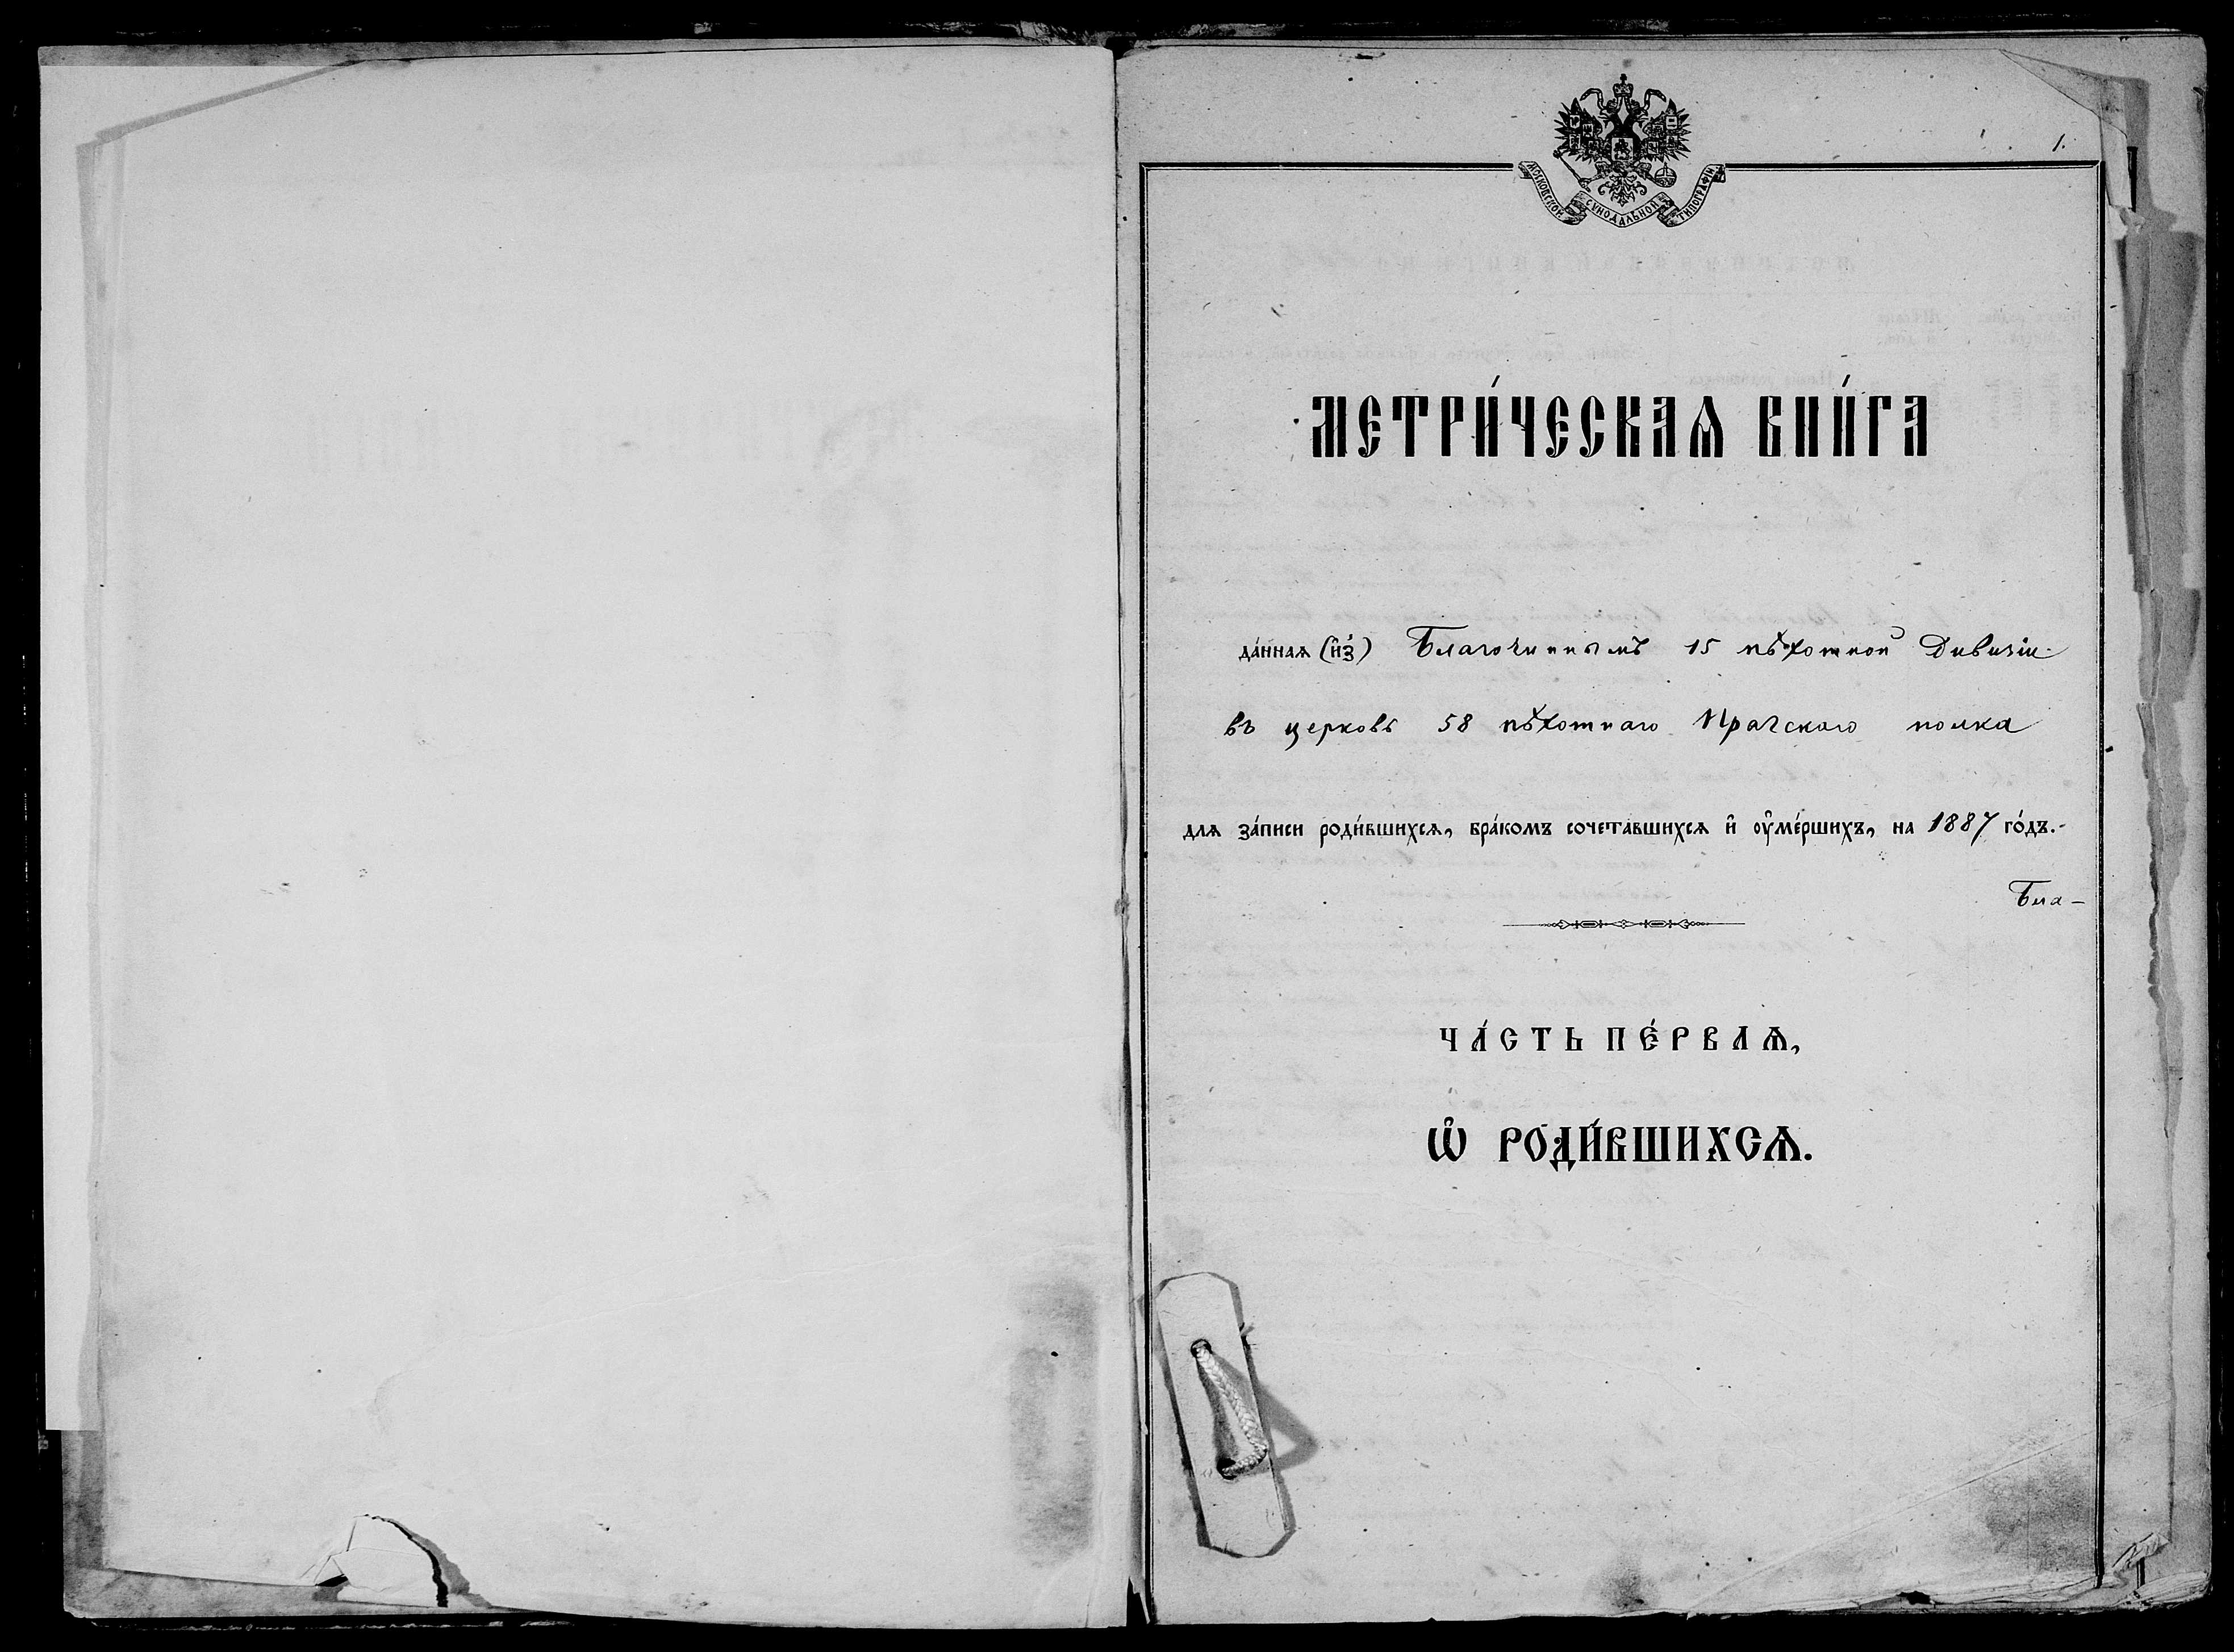 1.
МОСКОВСКОЙ СѴНОДАЛЬНОЙ ТИПОГРАФІИ
МЕТРИ́ЧЕСКАѦ КНИ́ГА
да́ннаѧ (и҆з̾) Благочиннымъ 15 пѣхотной Дивизіи
въ церковь 58 пѣхотнаго Пражскаго полка
для за́писи роди́вшихсѧ, бра́комъ сочета́вшихсѧ и҆ ᲂу҆ме́ршихъ, на 1887 го́дъ.
Бла-
ЧА́СТЬ ПЕ́РВАѦ,
Ѡ҆ РОДИ́ВШИХСѦ.